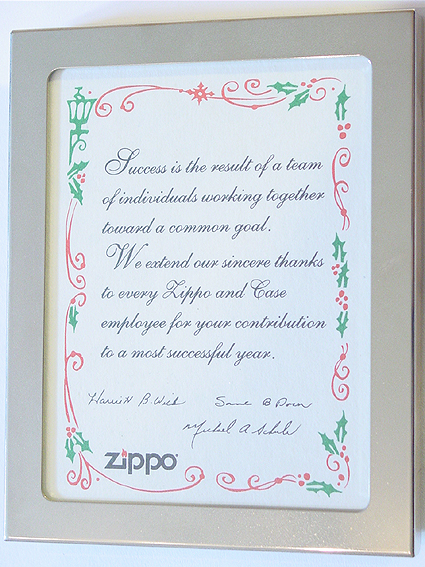 Success is the result of a team
of individuals working together
toward a common goal.
We extend our sincere thanks
to every Zippo and Case
employee for your contribution
to a most successful year.
Harriett B. Wick
B Dorn
Michael A. Schuler
zippo